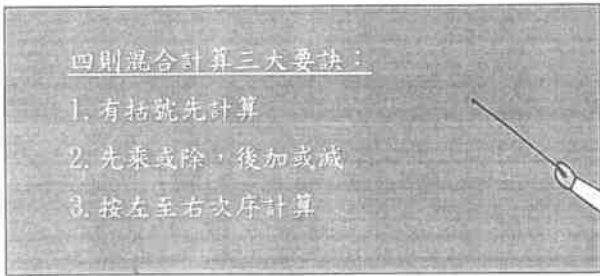 四則混合計算三大要訣：
1. 有括號先計算
2. 先乘或除，後加或減
3. 按左至右次序計算